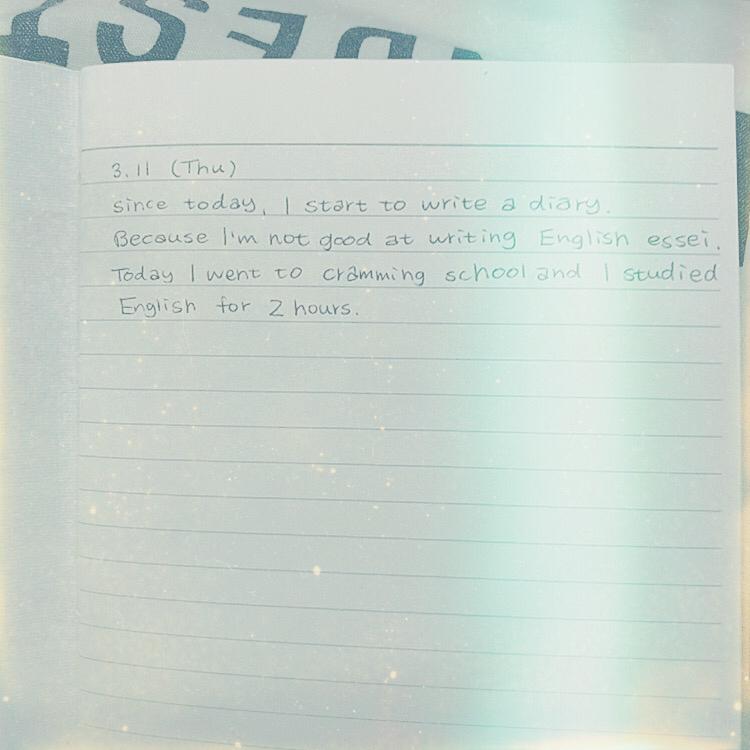 3.11 (Thu)
since today, I start to write a diary.
Because I'm not good at writing English essei.
Today I went to cramming school and I studied
English for 2 hours.